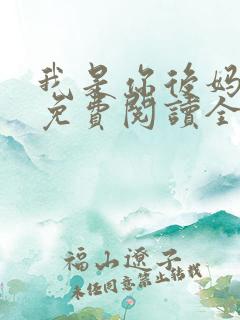 我是你後妈
免費閱讀全
福山遼子
未经同意禁止转载